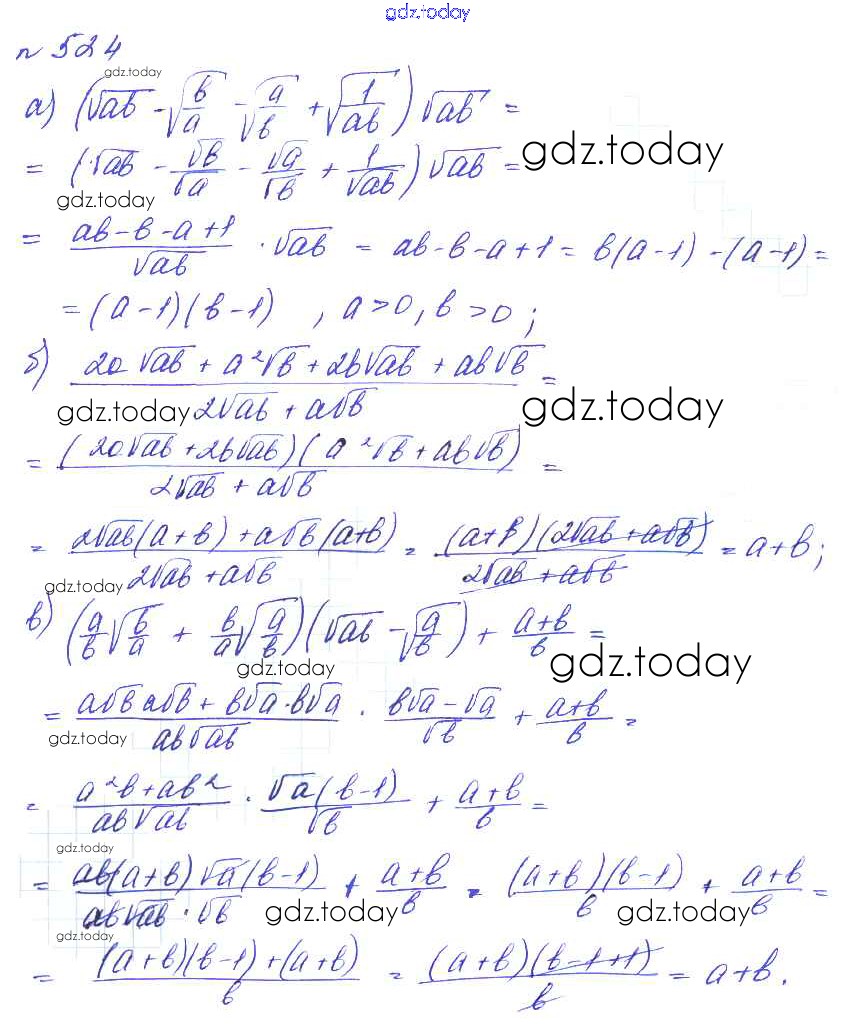 gdz.today
n 524
gdz.today
а) (√ab - √(b/a) - √(a/b) + √(1/ab)) √ab =
= (√ab - √b/√a - √a/√b + 1/√ab) √ab = gdz.today
gdz.today
= (ab-b-a+1)/√ab · √ab = ab-b-a+1 = b(a-1)-(a-1) =
= (a-1)(b-1) , a>0, b>0;
б) (2a√ab + a²√b + 2b√ab + ab√b)/(2√ab + a√b) =
gdz.today gdz.today
= (2a√ab + 2b√ab)(a²√b + ab√b)/(2√ab + a√b) =
= (2√ab(a+b) + a√b(a+b))/(2√ab + a√b) = (a+b)(2√ab + a√b)/(2√ab + a√b) = a+b;
gdz.today
в) (a/b √(b/a) + b/a √(a/b))(√ab - √(a/b)) + (a+b)/b =
gdz.today gdz.today
= (a√b a√b + b√a·b√a)/(ab√ab) · (b√a - √a)/√b + (a+b)/b =
gdz.today
= (a²b + ab²)/(ab√ab) · √a(b-1)/√b + (a+b)/b =
gdz.today
= ab(a+b)√a(b-1)/(ab√ab · √b) + (a+b)/b = (a+b)(b-1)/b + (a+b)/b =
gdz.today gdz.today
gdz.today
= ((a+b)(b-1)+(a+b))/b = (a+b)(b-1+1)/b = a+b.